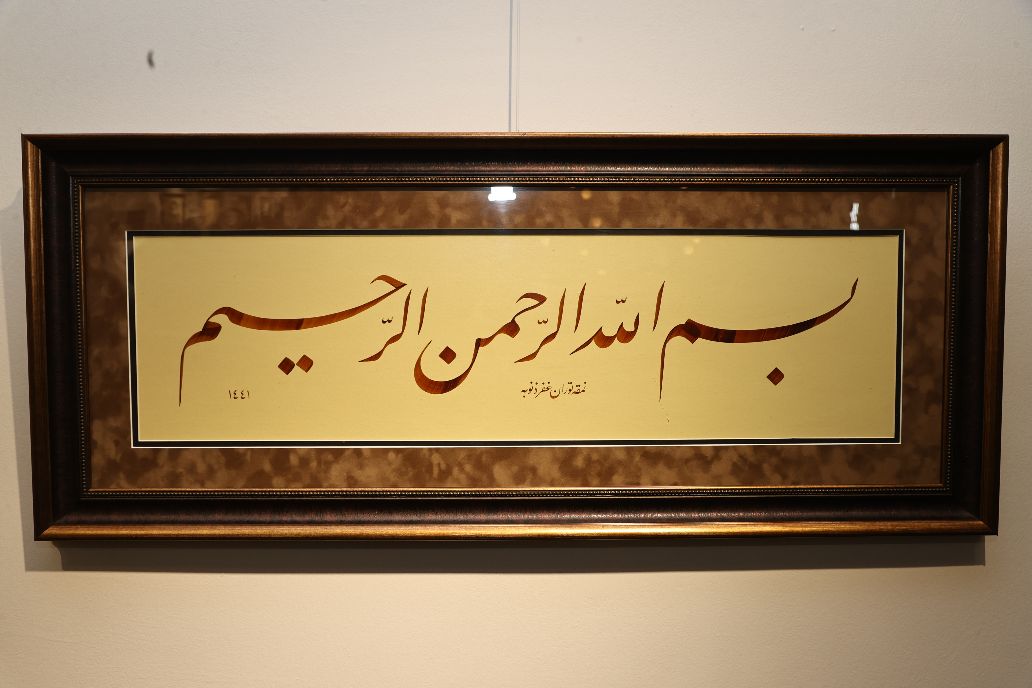 بسم الله الرحمن الرحيم
نمقه توران غفر ذنوبه
١٤٤١